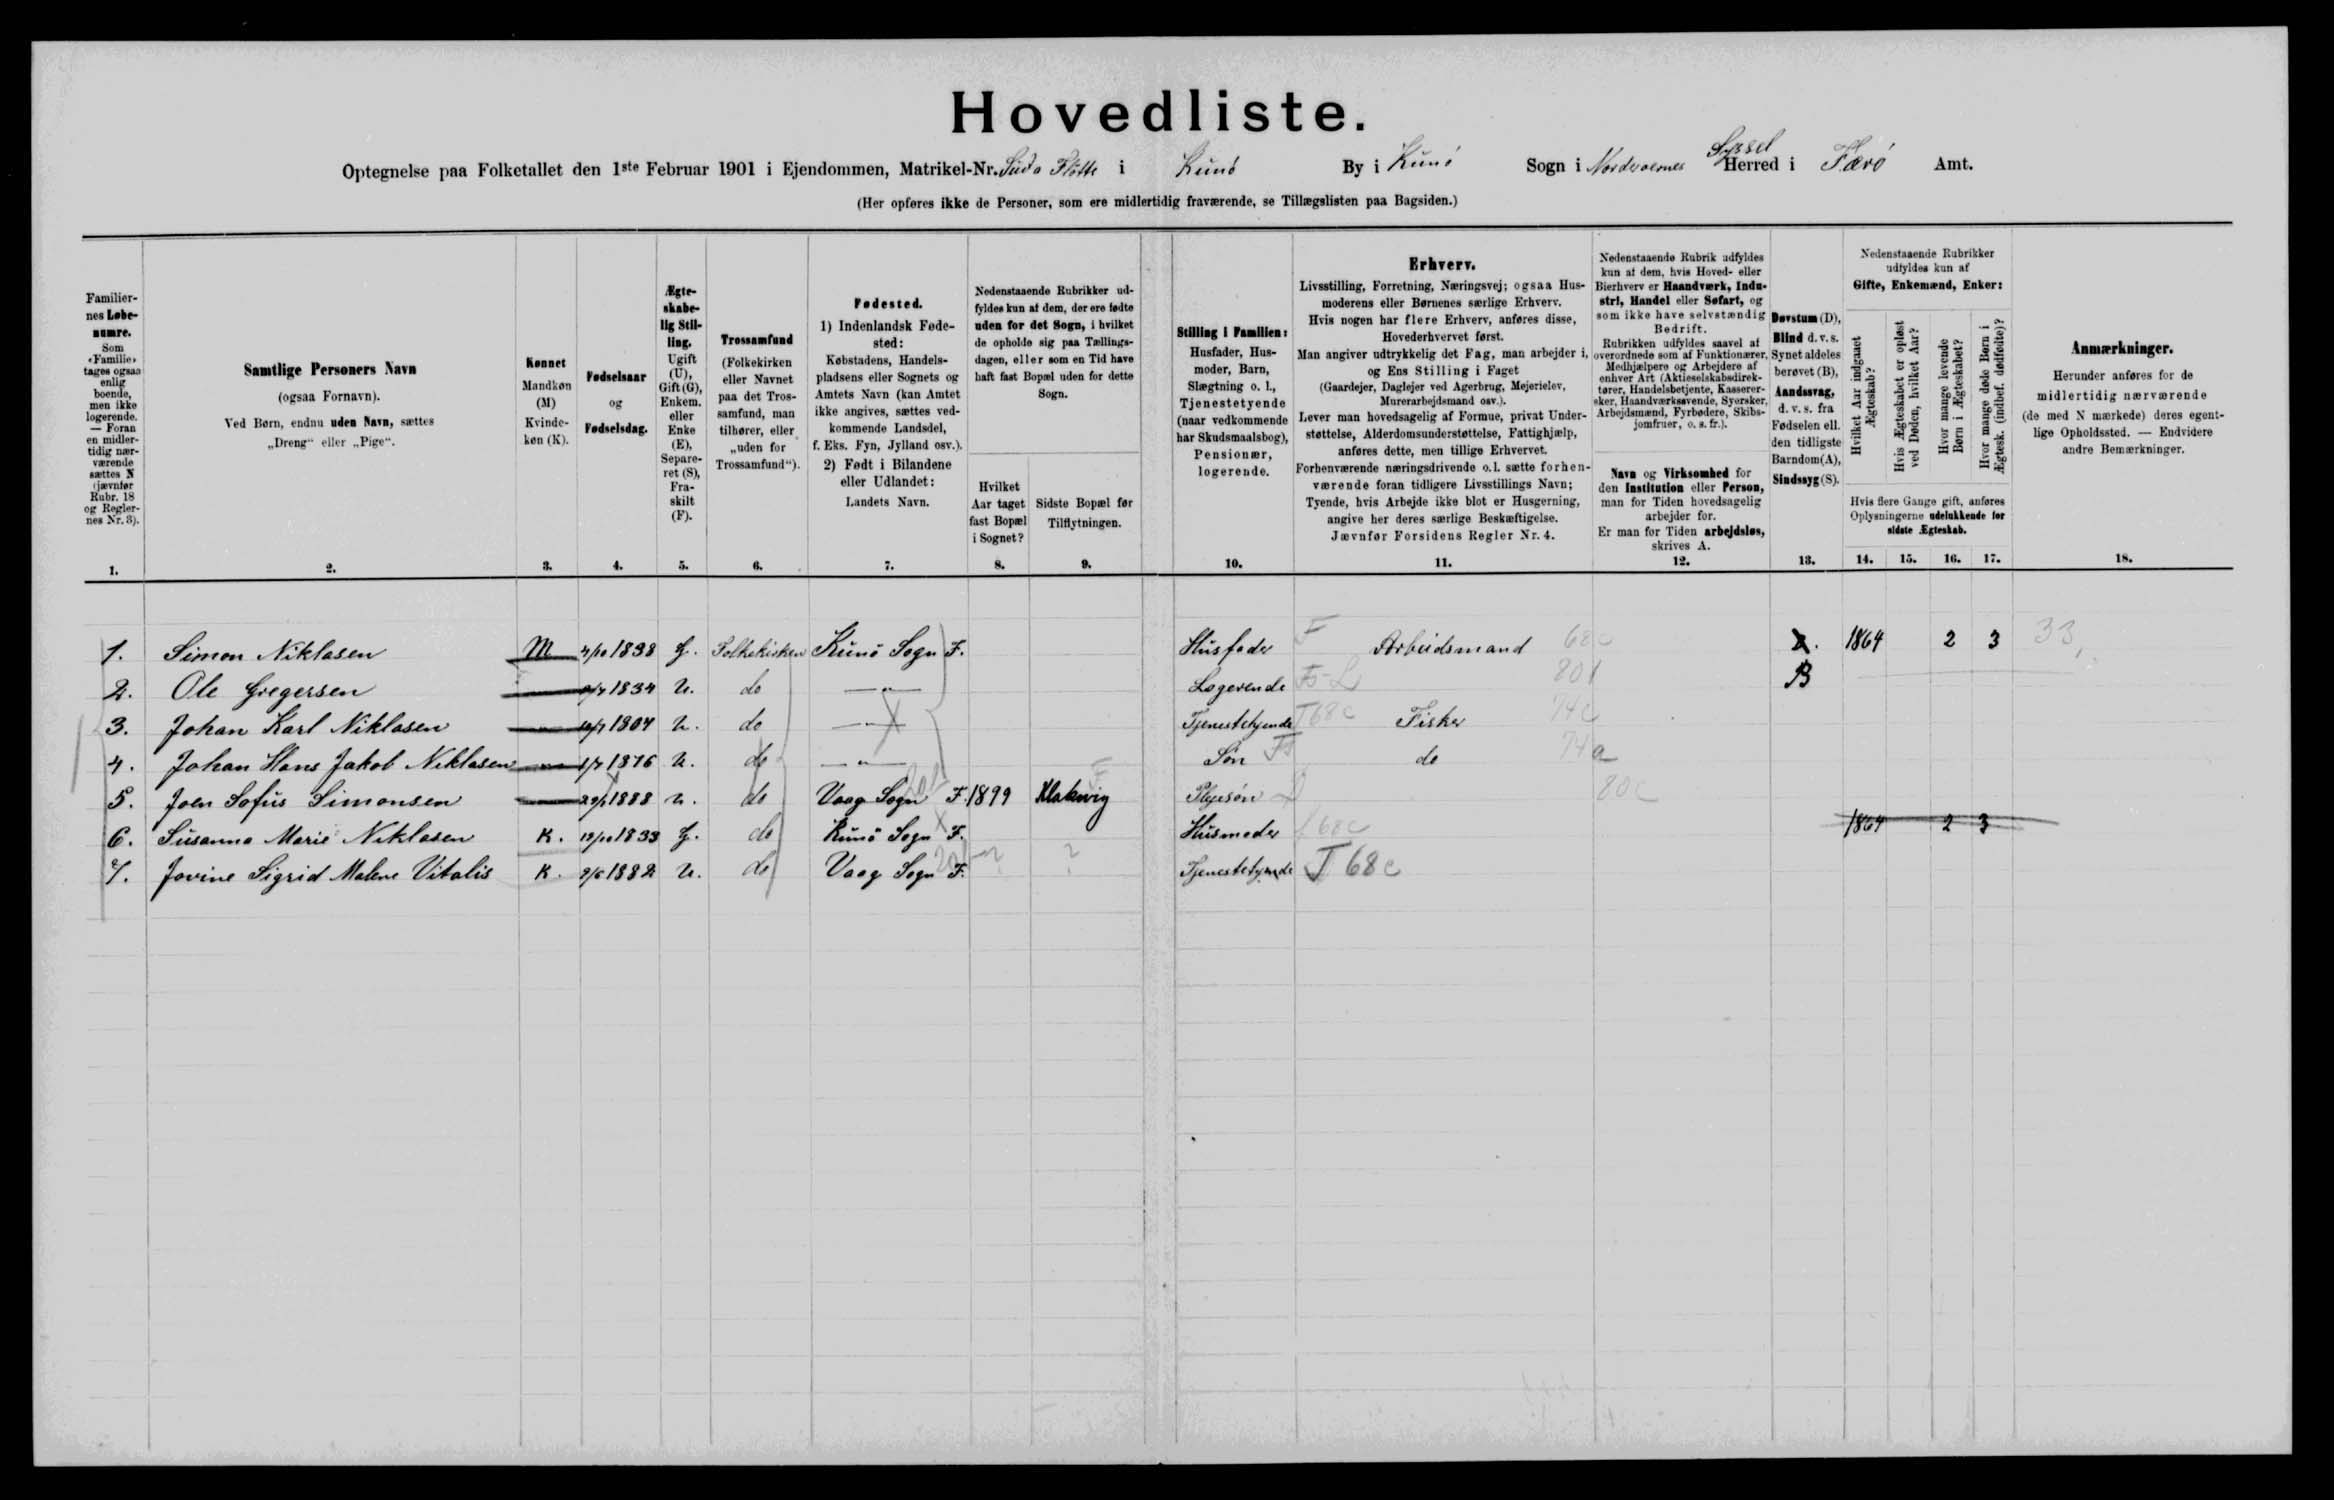 Hovedliste.
Optegnelse paa Folketallet den 1ste Februar 1901 i Ejendommen, Matrikel-Nr. i Kunö By i Kunö Sogn i Norderoernes Syssel Herred i Færö Amt.
(Her opføres ikke de Personer, som ere midlertidig fraværende, se Tillægslisten paa Bagsiden.)
Familiernes Løbenumre. Som «Familie» tages ogsaa enlig boende, men ikke logerende. — Foran en midlertidig nærværende sættes N (jævnfør Rubr. 18 og Reglernes Nr. 3).
1.
Samtlige Personers Navn
(ogsaa Fornavn).
Ved Børn, endnu uden Navn, sættes
„Dreng“ eller „Pige“.
2.
Kønnet
Mandkøn (M)
Kvindekøn (K).
3.
Fødselsaar
og
Fødselsdag.
4.
Ægteskabelig Stilling.
Ugift (U), Gift (G), Enkem. eller Enke (E), Separeret (S), Fraskilt (F).
5.
Trossamfund
(Folkekirken eller Navnet paa det Trossamfund, man tilhører, eller „uden for Trossamfund“).
6.
Fødested.
1) Indenlandsk Fødested:
Købstadens, Handelspladsens eller Sognets og Amtets Navn (kan Amtet ikke angives, sættes vedkommende Landsdel, f. Eks. Fyn, Jylland osv.).
2) Født i Bilandene eller Udlandet:
Landets Navn.
7.
Nedenstaaende Rubrikker udfyldes kun af dem, der ere fødte uden for det Sogn, i hvilket de opholde sig paa Tællingsdagen, eller som en Tid have haft fast Bopæl uden for dette Sogn.
Hvilket Aar taget fast Bopæl i Sognet?
8.
Sidste Bopæl før Tilflytningen.
9.
Stilling i Familien:
Husfader, Husmoder, Barn, Slægtning o. l., Tjenestetyende (naar vedkommende har Skudsmaalsbog), Pensionær, logerende.
10.
Erhverv.
Livsstilling, Forretning, Næringsvej; ogsaa Husmoderens eller Børnenes særlige Erhverv.
Hvis nogen har flere Erhverv, anføres disse, Hovederhvervet først.
Man angiver udtrykkelig det Fag, man arbejder i, og Ens Stilling i Faget
(Gaardejer, Daglejer ved Agerbrug, Mejerielev, Murerarbejdsmand osv.).
Lever man hovedsagelig af Formue, privat Understøttelse, Alderdomsunderstøttelse, Fattighjælp, anføres dette, men tillige Erhvervet.
Forhenværende næringsdrivende o. l. sætte forhenværende foran tidligere Livsstillings Navn;
Tyende, hvis Arbejde ikke blot er Husgerning, angive her deres særlige Beskæftigelse.
Jævnfør Forsidens Regler Nr. 4.
11.
Nedenstaaende Rubrik udfyldes kun af dem, hvis Hoved- eller Bierhverv er Haandværk, Industri, Handel eller Søfart, og som ikke have selvstændig Bedrift.
Rubrikken udfyldes saavel af overordnede som af Funktionærer, Medhjælpere og Arbejdere af enhver Art (Aktieselskabsdirektører, Handelsbetjente, Kasserersker, Haandværkssvende, Syersker, Arbejdsmænd, Fyrbødere, Skibsjomfruer, o. s. fr.).
Navn og Virksomhed for den Institution eller Person, man for Tiden hovedsagelig arbejder for.
Er man for Tiden arbejdsløs, skrives A.
12.
Døvstum (D), Blind d. v. s. Synet aldeles berøvet (B), Aandssvag, d. v. s. fra Fødselen ell. den tidligste Barndom (A), Sindssyg (S).
13.
Nedenstaaende Rubrikker udfyldes kun af
Gifte, Enkemænd, Enker:
Hvilket Aar indgaaet Ægteskab?
Hvis Ægteskabet er opløst ved Døden, hvilket Aar?
Hvor mange levende Børn i Ægteskabet?
Hvor mange døde Børn i Ægtesk. (indbef. dødfødte)?
Hvis flere Gange gift, anføres Oplysningerne udelukkende for sidste Ægteskab.
14. 15. 16. 17.
Anmærkninger.
Herunder anføres for de midlertidig nærværende (de med N mærkede) deres egentlige Opholdssted. — Endvidere andre Bemærkninger.
18.
1. Simon Niklasen M 1838 G. Folkekirken Kunö Sogn F. Husfader F Arbeidsmand 68c 1864 2 3 33
2. Ole Gregersen 1834 U. do —"— Logerende 801 B
3. Johan Karl Niklasen U. do —"— Tjenestetyende T 68c Fisker 74c
4. Johan Hans Jakob Niklasen 1876 U. do —"— Søn do 74a
5. Joen Sofus Simonsen 1888 U. do Vaag Sogn F. 1899 Klaksvig Plejesön 80c
6. Susanna Marie Niklasen K. 1833 G. do Kunö Sogn F. Husmoder 68c 1864 2 3
7. Jovine Sigrid Malene Vitalis K. 1882 U. do Vaag Sogn F. ? ? Tjenestetyende T 68c